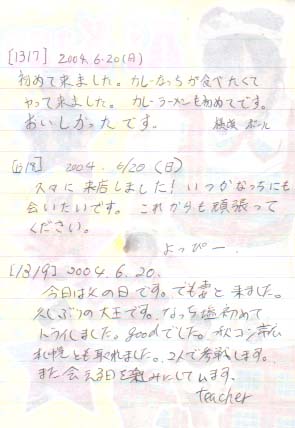 [1317] 2004.6.20(日)
初めて来ました。カレーなっちが食べたくて
やって来ました。カレーラーメンも初めてです。
おいしかったです。 横浜 ポール
[1318] 2004 6/20 (日)
久々に来店しました!いつかなっちにも
会いたいです。これからも頑張って
ください。
よっぴー
[1319] 2004.6.20.
今日は父の日です。でも妻と来ました。
久しぶりの大王です。なっち塩初めて
トライしました。goodでした。
札幌とも取れました。2人で参戦します。
また会える日を楽しみにしています。
teacher